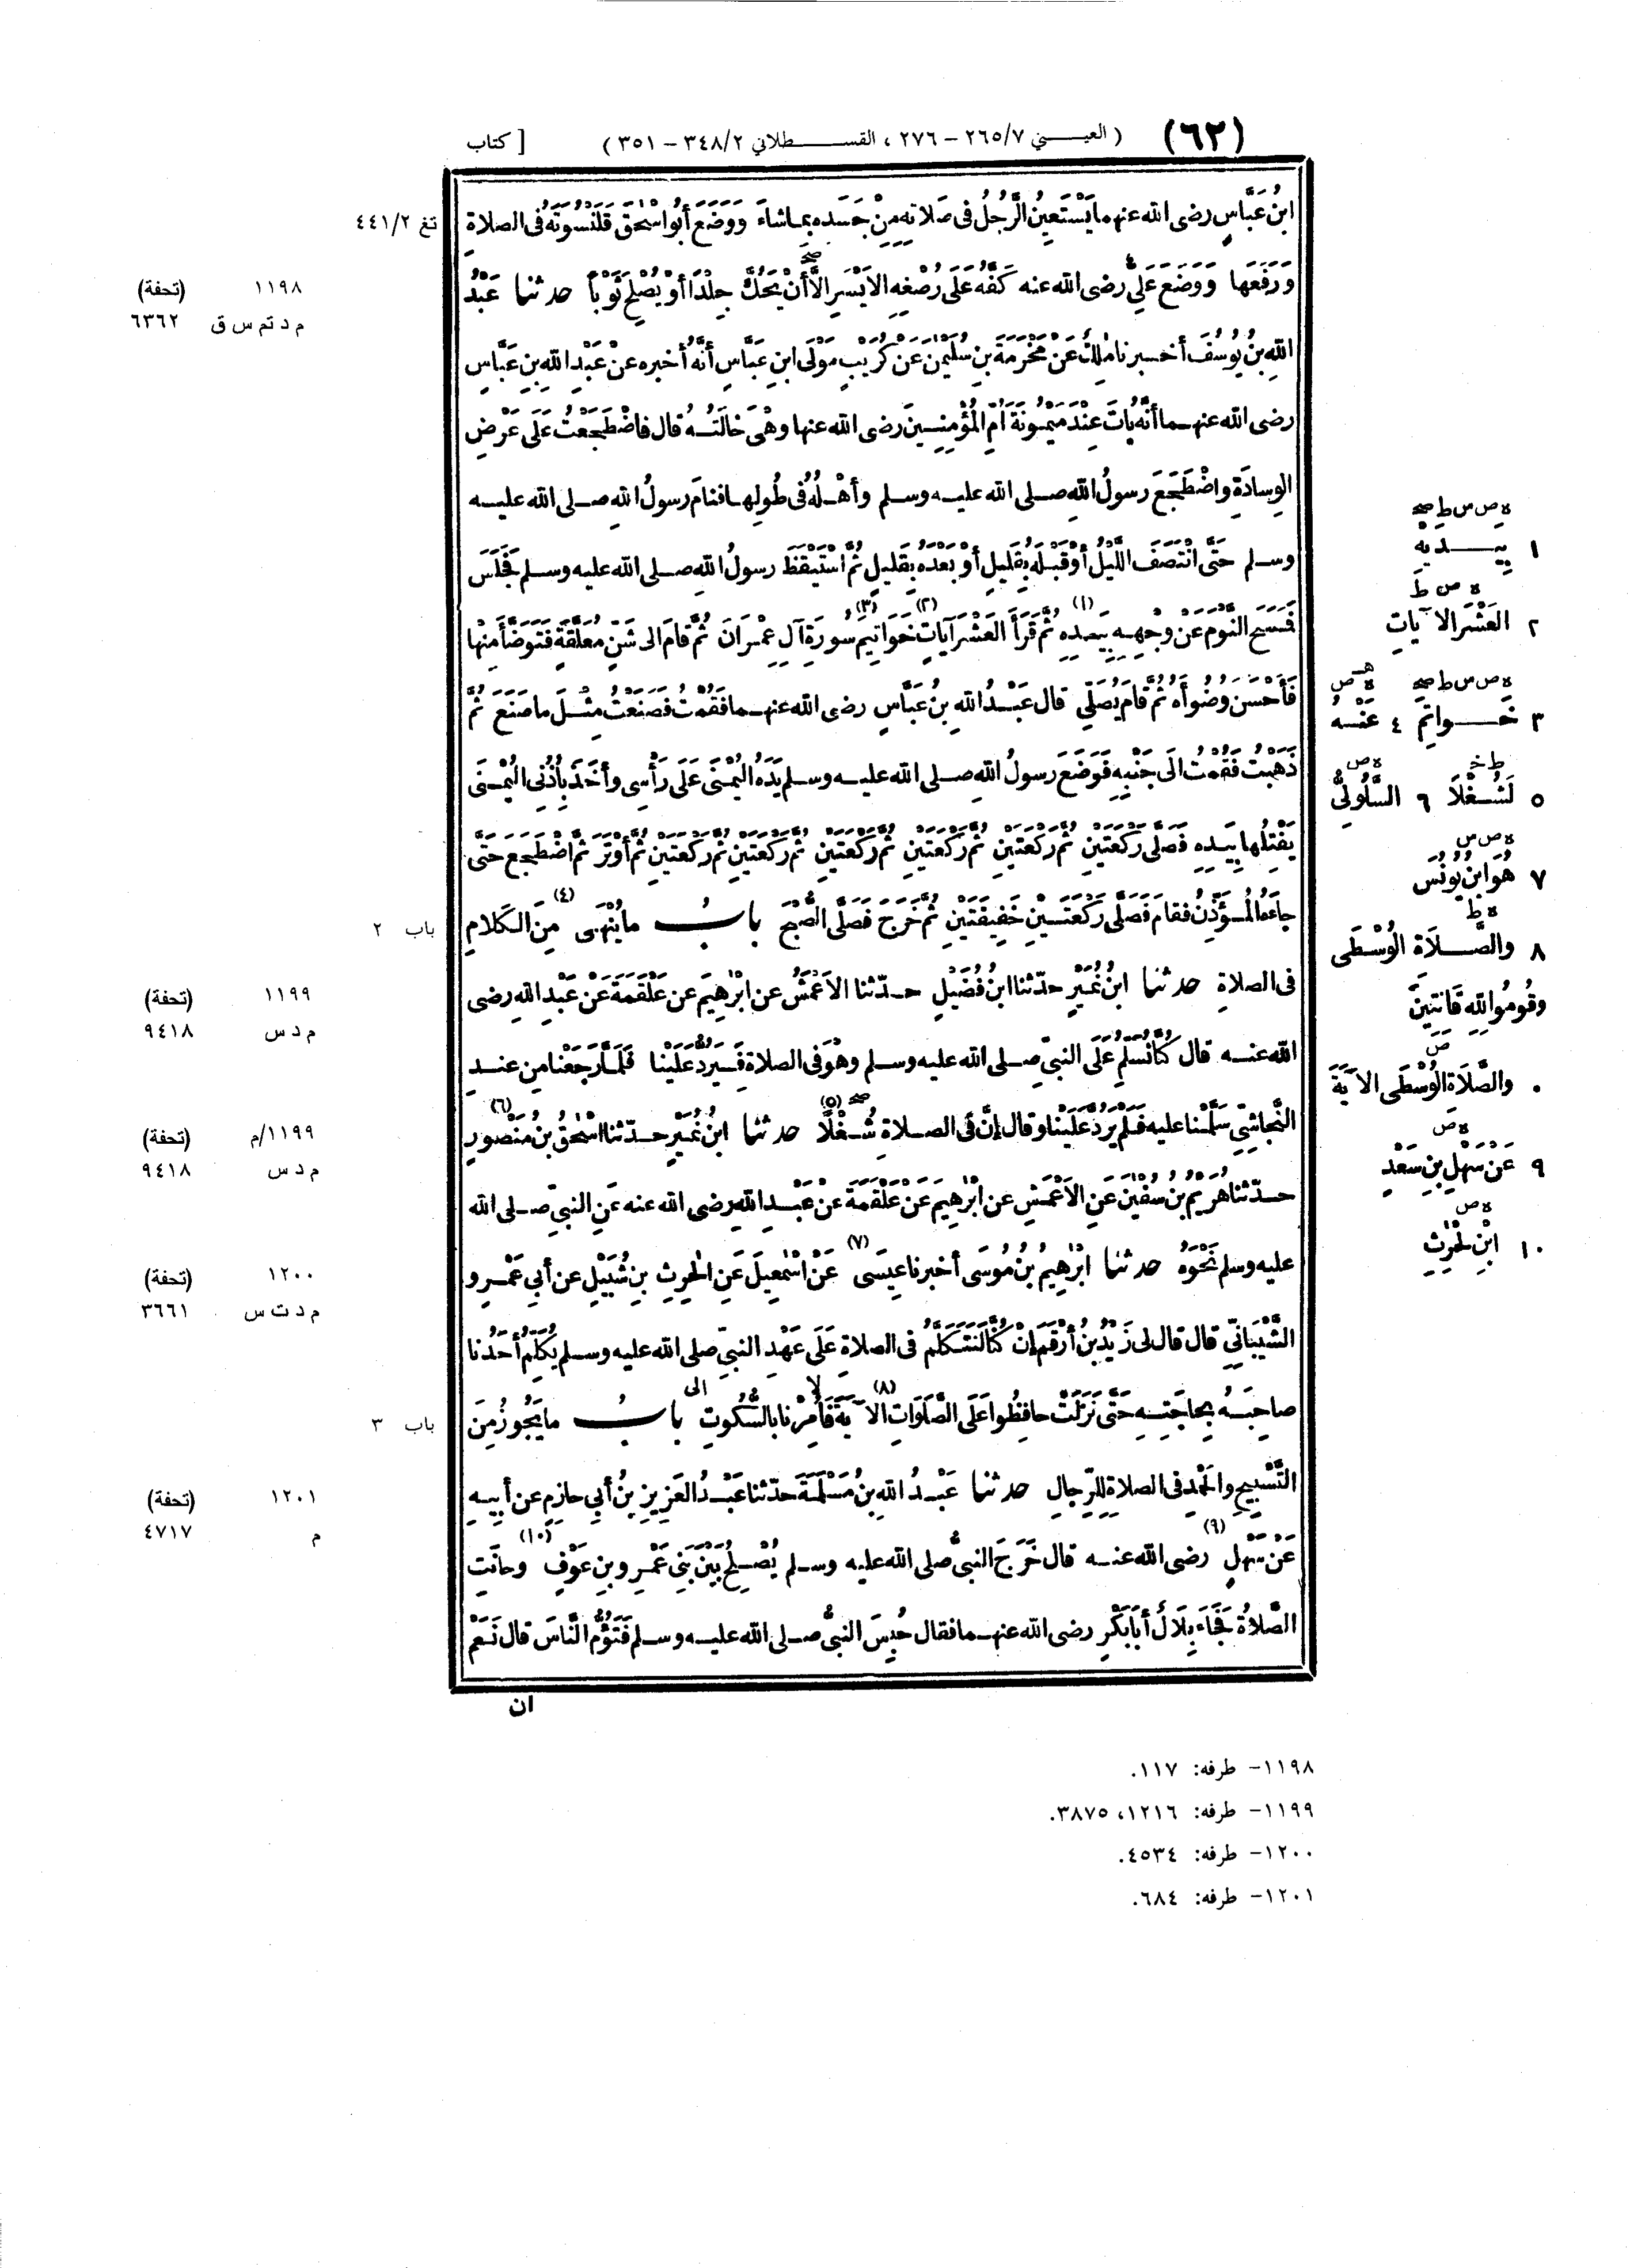 (٦٢) ( العيني ٢٦٥/٧ - ٢٧٦ ، القسطلاني ٣٤٨/٢ - ٣٥١ ) [ كتاب
ابنُ عَبَّاسٍ رضى الله عنهما يَسْتَعِينُ الرَّجُلُ فى صَلاتِهِ مِنْ جَسَدِهِ بماشاءَ وَوَضَعَ أَبُو اسْحٰقَ قَلَنْسُوَتَهُ فى الصلاةِ
وَرَفَعَها وَوَضَعَ عَلِىٌّ رضى الله عنه كَفَّهُ عَلَى رُصْغِهِ الايْسَرِ الَّا أَنْ يَحُكَّ جِلْدًا أَوْ يُصْلِحَ ثَوْبًا حدثنا عَبْدُ
اللهِ بنُ يُوسُفَ أخبرنا مٰلِكٌ عَنْ مَخْرَمَةَ بنِ سُلَيْمٰنَ عن كُرَيْبٍ مَوْلَى ابنِ عَبَّاسٍ أَنَّهُ أَخبره عَنْ عَبْدِ اللهِ بنِ عَبَّاسٍ
رضى الله عنهما أَنَّهُ باتَ عِنْدَ مَيْمُونَةَ أُمِّ المُؤْمِنِينَ رضى الله عنها وهْىَ خالَتُهُ قال فاضْطَجَعْتُ عَلَى عَرْضِ
الوِسادَةِ واضْطَجَعَ رسولُ اللهِ صلى الله عليه وسلم وأَهْلُهُ فى طُولِها فنامَ رسولُ اللهِ صلى الله عليه
وسلم حَتَّى انْتَصَفَ اللَّيْلُ أَوْ قَبْلَهُ بِقَلِيلٍ أَوْ بَعْدَهُ بِقَلِيلٍ ثُمَّ اسْتَيْقَظَ رسولُ اللهِ صلى الله عليه وسلم فَجَلَسَ
فَمَسَحَ النَّوْمَ عن وجْهِهِ بِيَدِهِ (١) ثُمَّ قَرَأَ العَشْرَ آياتٍ (٢) خَوَاتِيمَ (٣) سُورَةِ آلِ عِمْرانَ ثُمَّ قامَ الى شَنٍّ مُعَلَّقَةٍ فَتَوَضَّأَ مِنْها
فَأَحْسَنَ وضُوأَهُ ثُمَّ قامَ يُصَلِّى قال عَبْدُ اللهِ بنُ عَبَّاسٍ رضى الله عنهما فَقُمْتُ فَصَنَعْتُ مِثْلَ ما صَنَعَ ثُمَّ
ذَهَبْتُ فَقُمْتُ الى جَنْبِهِ فَوَضَعَ رسولُ اللهِ صلى الله عليه وسلم يَدَهُ اليُمْنَى عَلَى رَأْسِى وأَخَذَ بِأُذُنِى اليُمْنَى
يَفْتِلُها بِيَدِهِ فَصَلَّى رَكْعَتَيْنِ ثُمَّ رَكْعَتَيْنِ ثُمَّ رَكْعَتَيْنِ ثُمَّ رَكْعَتَيْنِ ثُمَّ رَكْعَتَيْنِ ثُمَّ رَكْعَتَيْنِ ثُمَّ أَوْتَرَ ثُمَّ اضْطَجَعَ حَتَّى
جاءَهُ المُؤَذِّنُ فقامَ فَصَلَّى رَكْعَتَيْنِ خَفِيفَتَيْنِ ثُمَّ خَرَجَ فَصَلَّى الصُّبْحَ بابُ ما يُنْهَى (٤) مِنَ الكَلامِ
فى الصلاةِ حدثنا ابنُ نُمَيْرٍ حدّثنا ابنُ فُضَيْلٍ حدّثنا الاَعْمَشُ عن ابْرٰهِيمَ عن عَلْقَمَةَ عن عَبْدِ اللهِ رضى
الله عنه قال كُنَّا نُسَلِّمُ عَلَى النبىِّ صلى الله عليه وسلم وهُوَ فى الصلاةِ فَيَرُدُّ عَلَيْنا فَلَمَّا رَجَعْنا مِن عندِ
النَّجاشِىِّ سَلَّمْنا عليه فلم يَرُدَّ عَلَيْنا وقال إِنَّ فى الصلاةِ شُغْلًا (٥) حدثنا ابنُ نُمَيْرٍ حدّثنا اسْحٰقُ بنُ مَنْصُورٍ (٦)
حدّثنا هُرَيْمُ بنُ سُفْيٰنَ عَنِ الاَعْمَشِ عن ابْرٰهِيمَ عن عَلْقَمَةَ عن عَبْدِ اللهِ رضى الله عنه عَنِ النبىِّ صلى الله
عليه وسلم نَحْوَهُ حدثنا ابْرٰهِيمُ بنُ مُوسَى أخبرنا عِيسَى (٧) عَنْ اسْمٰعِيلَ عَنِ الحٰرِثِ بنِ شُبَيْلٍ عن أَبِى عَمْرٍو
الشَّيْبَانِىِّ قال قال لى زَيْدُ بنُ أَرْقَمَ إِنْ كُنَّا لَنَتَكَلَّمُ فى الصلاةِ عَلَى عَهْدِ النبىِّ صلى الله عليه وسلم يُكَلِّمُ أَحَدُنا
صاحِبَهُ بِحاجَتِهِ حَتَّى نَزَلَتْ حافِظُوا عَلَى الصَّلَوَاتِ (٨) الآيَةَ فَأُمِرْنا بالسُّكُوتِ بابُ ما يَجُوزُ مِنَ
التَّسْبِيحِ والحَمْدِ فى الصلاةِ للرِّجالِ حدثنا عَبْدُ اللهِ بنُ مَسْلَمَةَ حدّثنا عَبْدُ العَزِيزِ بنُ أَبِى حازِمٍ عن أَبِيهِ
عَنْ سَهْلٍ (٩) رضى الله عنه قال خَرَجَ النبىُّ صلى الله عليه وسلم يُصْلِحُ بَيْنَ بَنِى عَمْرِو بنِ عَوْفٍ (١٠) وحانَتِ
الصَّلاةُ فَجَاءَ بِلَالٌ أَبَا بَكْرٍ رضى الله عنهما فقال حُبِسَ النبىُّ صلى الله عليه وسلم فَتَؤُمُّ النَّاسَ قال نَعَمْ
ان
ه ص س ط صح
١ بِيَدَيْهِ
ه ص ط
٢ العَشْرَ الآيَاتِ
ه ص س ط صح
٣ خَوَاتِمَ ٤ عَنْهُ
ط خ ه ص
٥ لَشُغْلًا ٦ السَّلُولِىُّ
ه ص س
٧ هُوَ ابنُ يُونُسَ
ه ط
٨ والصَّلَاةِ الوُسْطَى
وقُومُوا لِلّٰهِ قَانِتِينَ
ص
والصَّلَاةِ الوُسْطَى الآيَةَ
ه ص
٩ عَنْ سَهْلِ بنِ سَعْدٍ
ه ص
١٠ ابْنِ الحٰرِثِ
تغ ٤٤١/٢
١١٩٨ (تحفة)
م د تم س ق ٦٣٦٢
باب ٢
١١٩٩ (تحفة)
م د س ٩٤١٨
١١٩٩/م (تحفة)
م د س ٩٤١٨
١٢٠٠ (تحفة)
م د ت س ٣٦٦١
باب ٣
١٢٠١ (تحفة)
م ٤٧١٧
١١٩٨- طرفه: ١١٧.
١١٩٩- طرفه: ١٢١٦، ٣٨٧٥.
١٢٠٠- طرفه: ٤٥٣٤.
١٢٠١- طرفه: ٦٨٤.